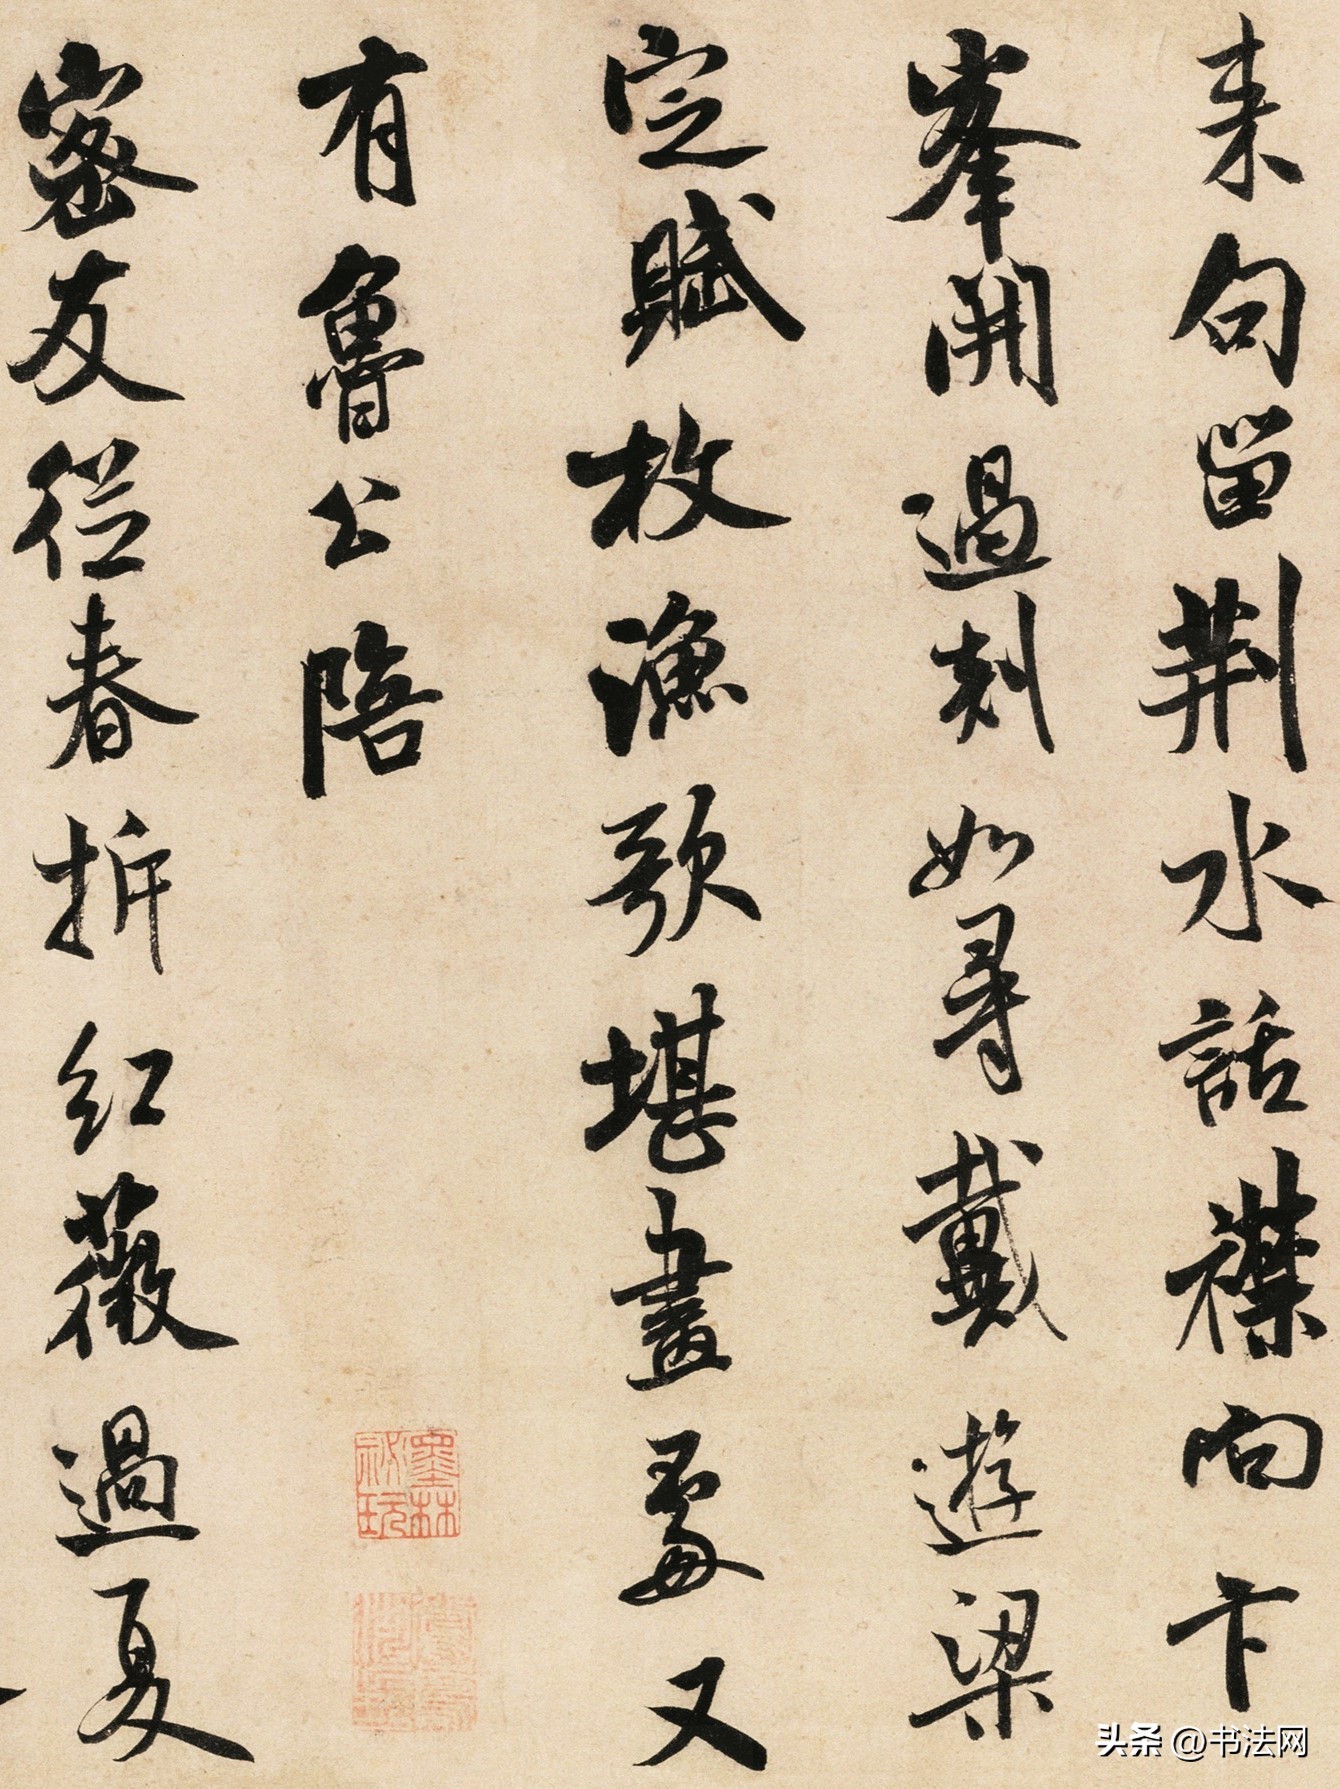 来句留荆水話襟向卞
峯開過剡如尋戴遊梁
定賦枚漁歌堪畫處又
有魯公陪
密友從春拆紅薇過夏
墨林
祕玩
头条 @书法网